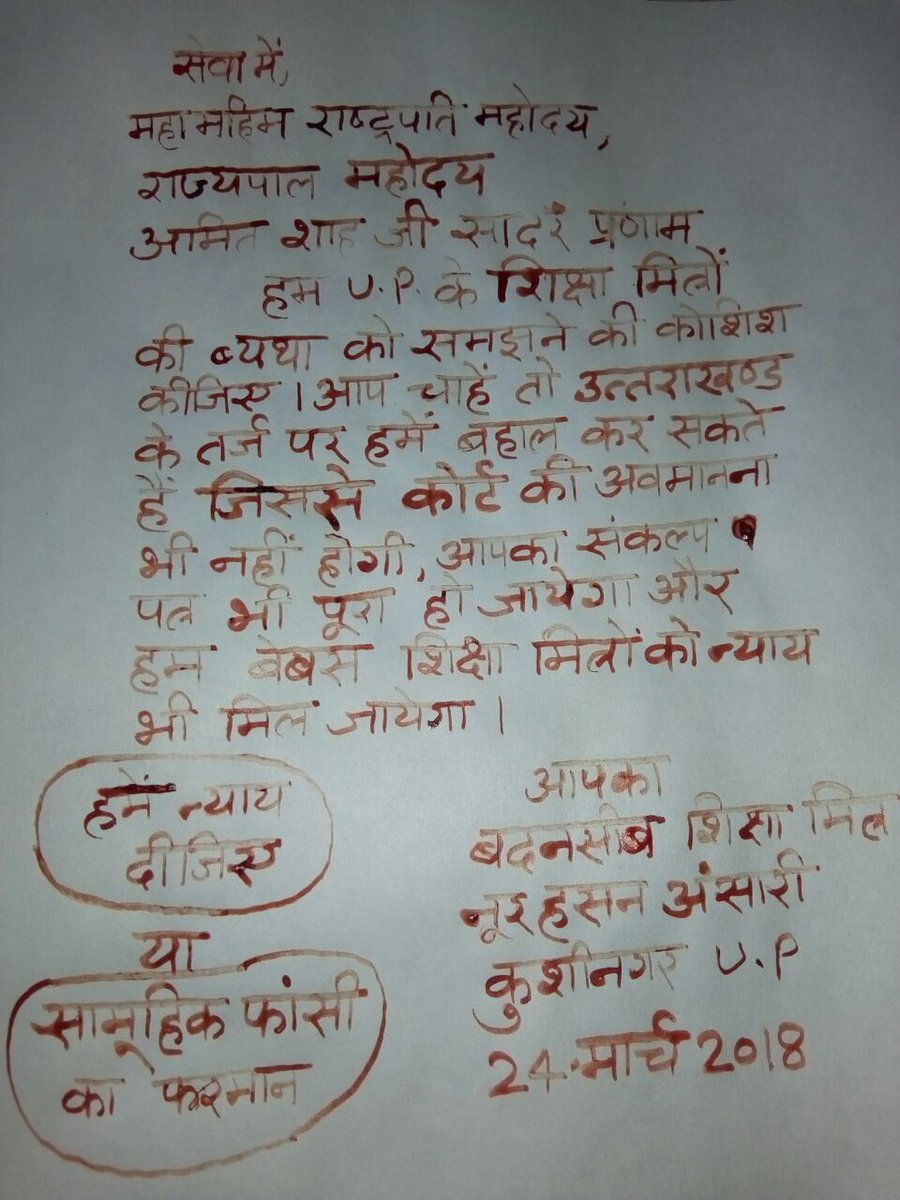 सेवा में,
महामहिम राष्ट्रपति महोदय,
राज्यपाल महोदय
अमित शाह जी सादर प्रणाम
हम U.P. के शिक्षा मित्रों
की ब्यथा को समझने की कोशिश
कीजिए । आप चाहें तो उत्तराखण्ड
के तर्ज पर हमें बहाल कर सकते
हैं जिससे कोर्ट की अवमानना
भी नहीं होगी, आपका संकल्प
पत्र भी पूरा हो जायेगा और
हम बेबस शिक्षा मित्रों को न्याय
भी मिल जायेगा ।
हमें न्याय
दीजिए
या
सामूहिक फांसी
का फरमान
आपका
बदनसीब शिक्षा मित्र
नूरहसन अंसारी
कुशीनगर U.P
24.मार्च 2018